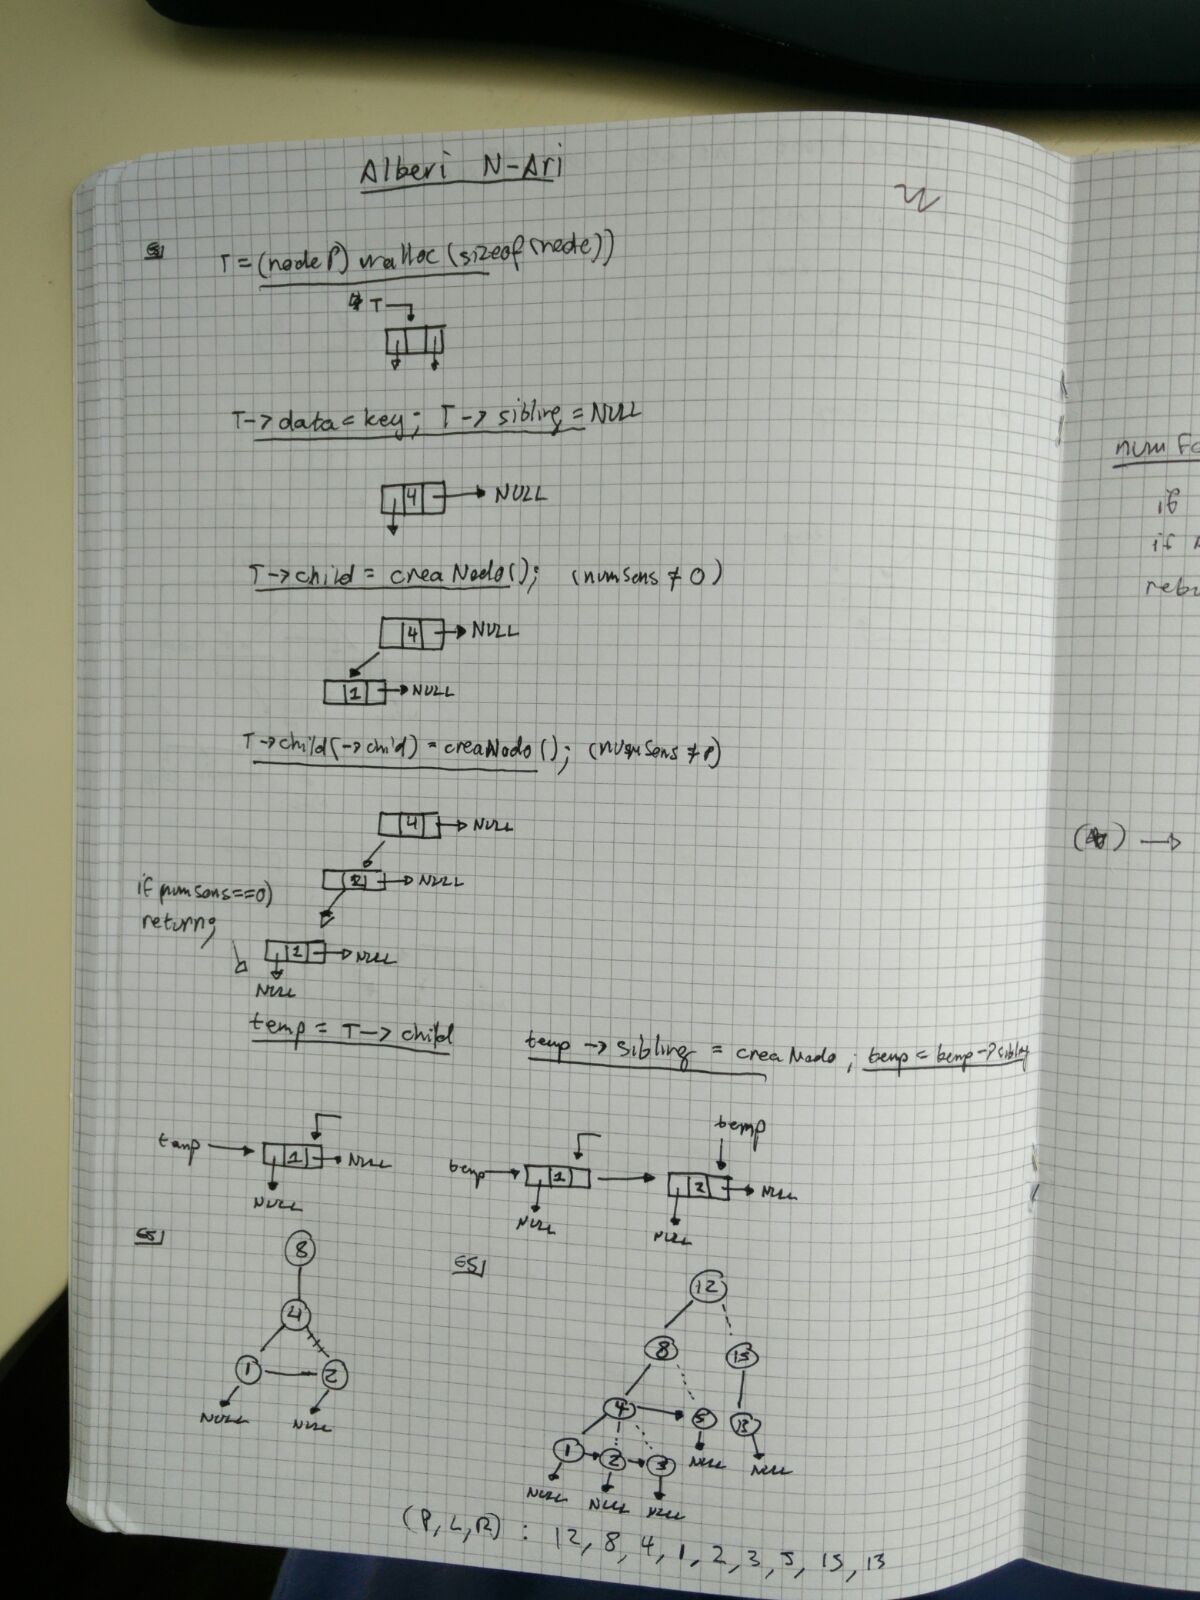 Alberi N-Ari
ES]
T = (nodeP) malloc (sizeof(node))
T
T -> data = key; T -> sibling = NULL
4 NULL
T -> child = creaNodo(); (numSons ≠ 0)
4 NULL
1 NULL
T -> child(-> child) = creaNodo(); (numSons ≠ 0)
4 NULL
2 NULL
if numsons==0)
return;
1 NULL
NULL
temp = T -> child
temp -> sibling = creaNodo; temp = temp -> sibling
temp 1 NULL
NULL
temp 1
NULL
temp
2 NULL
NULL
ES]
8
4
1 2
NULL NULL
ES]
12
8 15
4 5 13
1 2 3 NULL NULL
NULL NULL NULL
(P, L, R) : 12, 8, 4, 1, 2, 3, 5, 15, 13
if
if